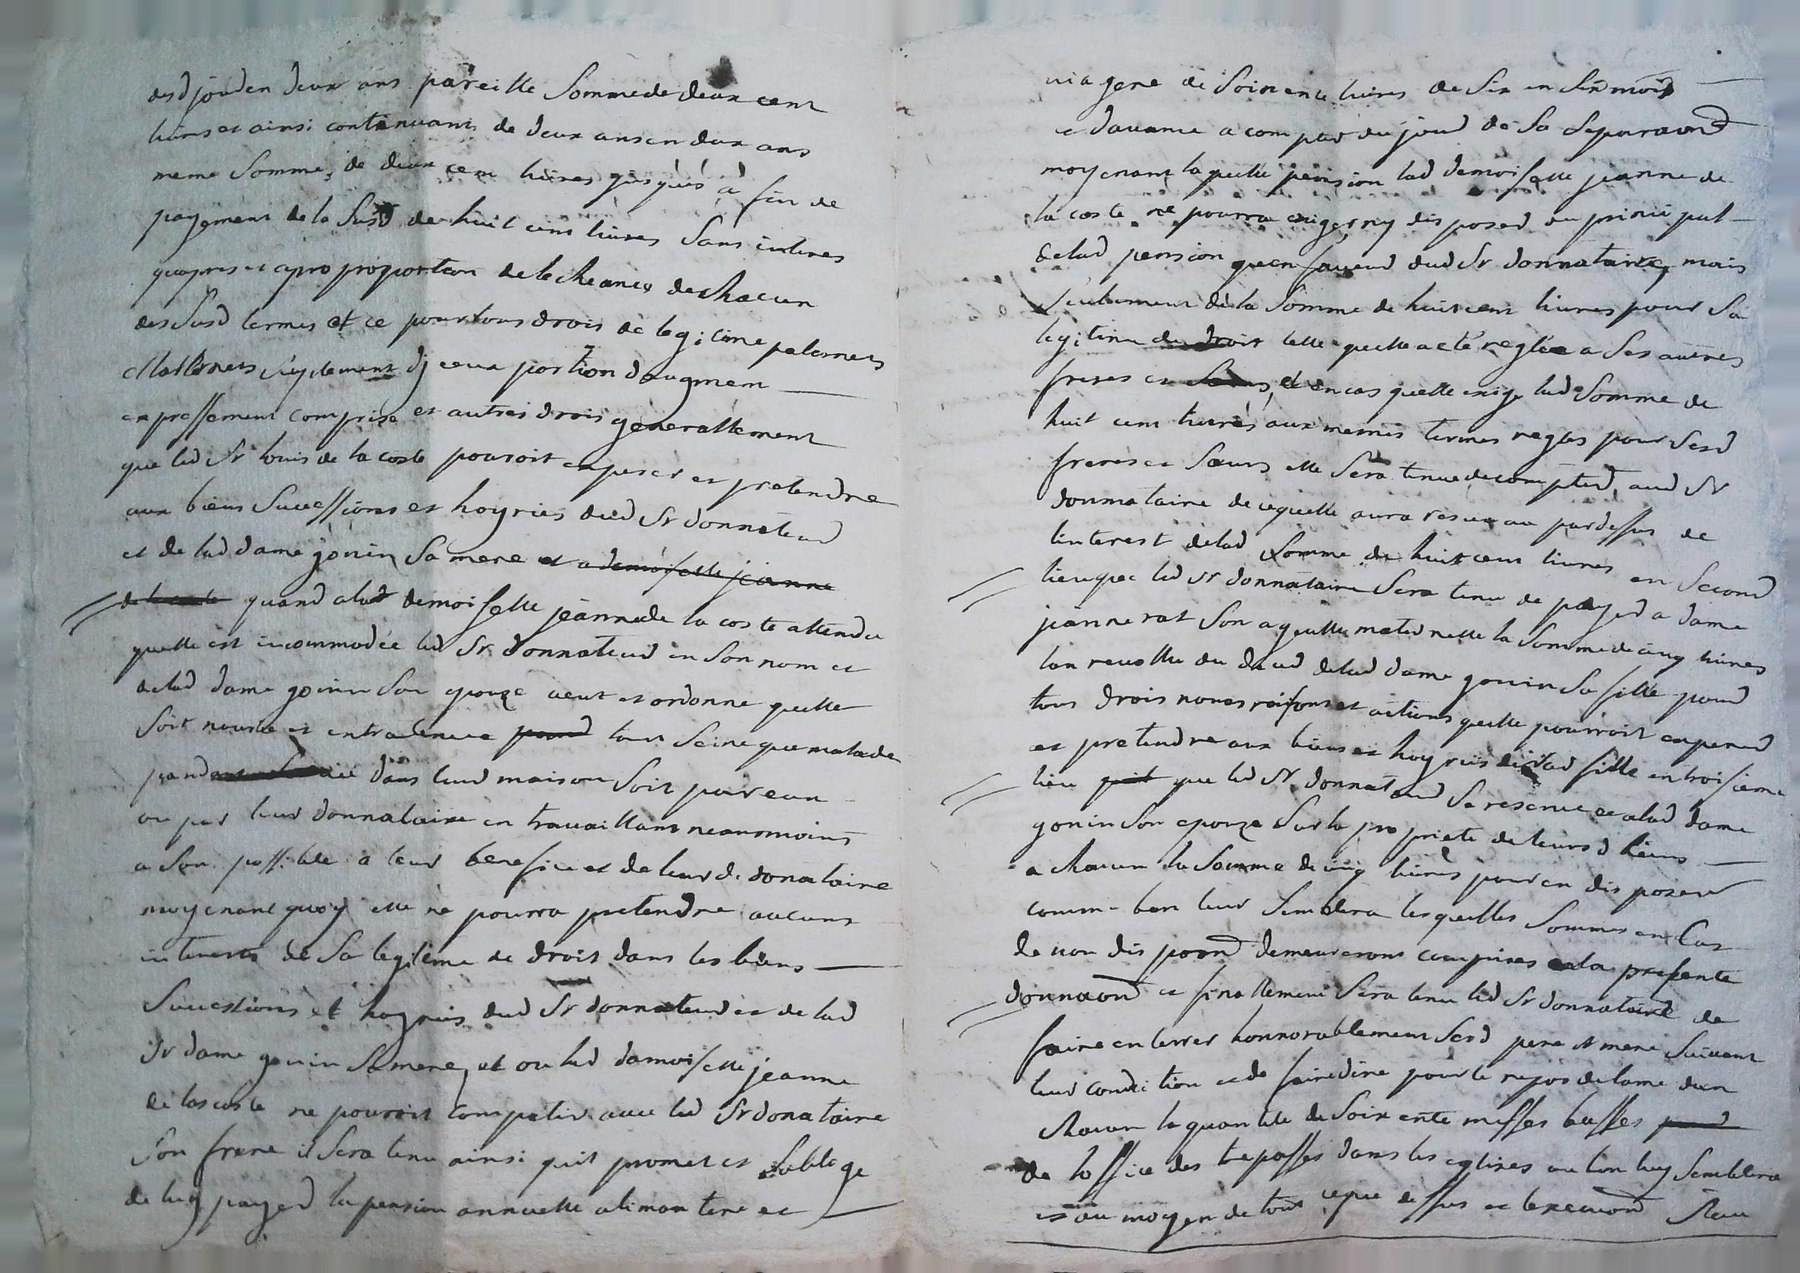 desd jour en deux ans pareille Somme de deux cent
livres et ainsi continuant de deux ans en deux ans
meme Somme, de deux cent livres jusques a fin de
payement de la Susd de huit cent livres Sans interes
qu apres et a pro proportion de lecheance de chacun
des Susd termes et ce pour tous drois de legitime paternels
Maternels Suplement dj ceux portion daugment
expressement comprise et autres drois generallement
que led Sr louis de la coste pouroit exposer et pretendre
aux biens Successions et hoyries dud Sr donnateur
et de lad dame gonin Sa mere et a demoiselle jeanne
de la coste quand a lad demoiselle jeanne de la coste attendu
quelle est incommodée led Sr donnateur en Son nom et
de lad dame gonin Son epouze veut et ordonne quelle
Soit nourie et entretenue pour tant Seine que malade
pendant Sa vie dans leur maison Soit par eux
ou par leur donnataire en travaillant neanmoins
a Son possible a leur benefice et de leur d donataire
moyenant quoy elle ne pourra pretendre aucuns
interests de Sa legitime de droit dans les biens
Successions et hoyries dud Sr donnateur et de lad
Sr dame gonin Sa mere, et ou lad damoiselle jeanne
de lascoste ne pouroit compatir avec led Sr donataire
Son frere il Sera tenu ainsi quil promet et Soblige
de luy payer la pension annuelle alimentere et
viagere de Soixente livres de Six en Six mois
et davance a compter du jour de Sa Separaon
moyenant laquelle pension lad demoiselle jeanne de
la coste ne pourra exiger ny disposer du principal
de lad pension quen faveur dud Sr donnataire, mais
Seulement de la Somme de huit cent livres pour Sa
legitime de droit telle quelle a eté reglée a Ses autres
freres et Seurs, et en cas quelle exige lad Somme de
huit cent livres aux memes termes regles pour Sesd
freres et Sœurs elle Sera tenue de compter, aud Sr
donnataire de ce quelle aura resceu au pardessus de
linterest de lad Somme de huit cent livres en Second
lieu que led Sr donnataire Sera tenu de payer a dame
jeanne rat Son ayeulle maternelle la Somme de cinq livres
lan revollu du deced de lad dame gonin Sa fille pour
tous drois noms raisons et actions quelle pourroit exposer
et pretendre aux biens et hoyries de sad fille en troisieme
lieu que led Sr donnateur Se reserve et a lad dame
gonin Son epouze Sur la propriete de leurs d biens
a chacun la Somme de cinq livres pour en disposer
comme bon leur Semblera lesquelles Sommes en Cas
de non dispoon demeureront comprises a la presente
donnaon et finallement Sera tenu led Sr donnataire de
faire enterrer honnorablement Sesd pere et mere Suivant
leur condition et de faire dire pour le repos de lame dun
chacun la quantite de Soixente messes basses pour
de loffice des trepasses dans les eglises ou lon luy Semblera
et au moyen de tout ce que dessus et lexecuon